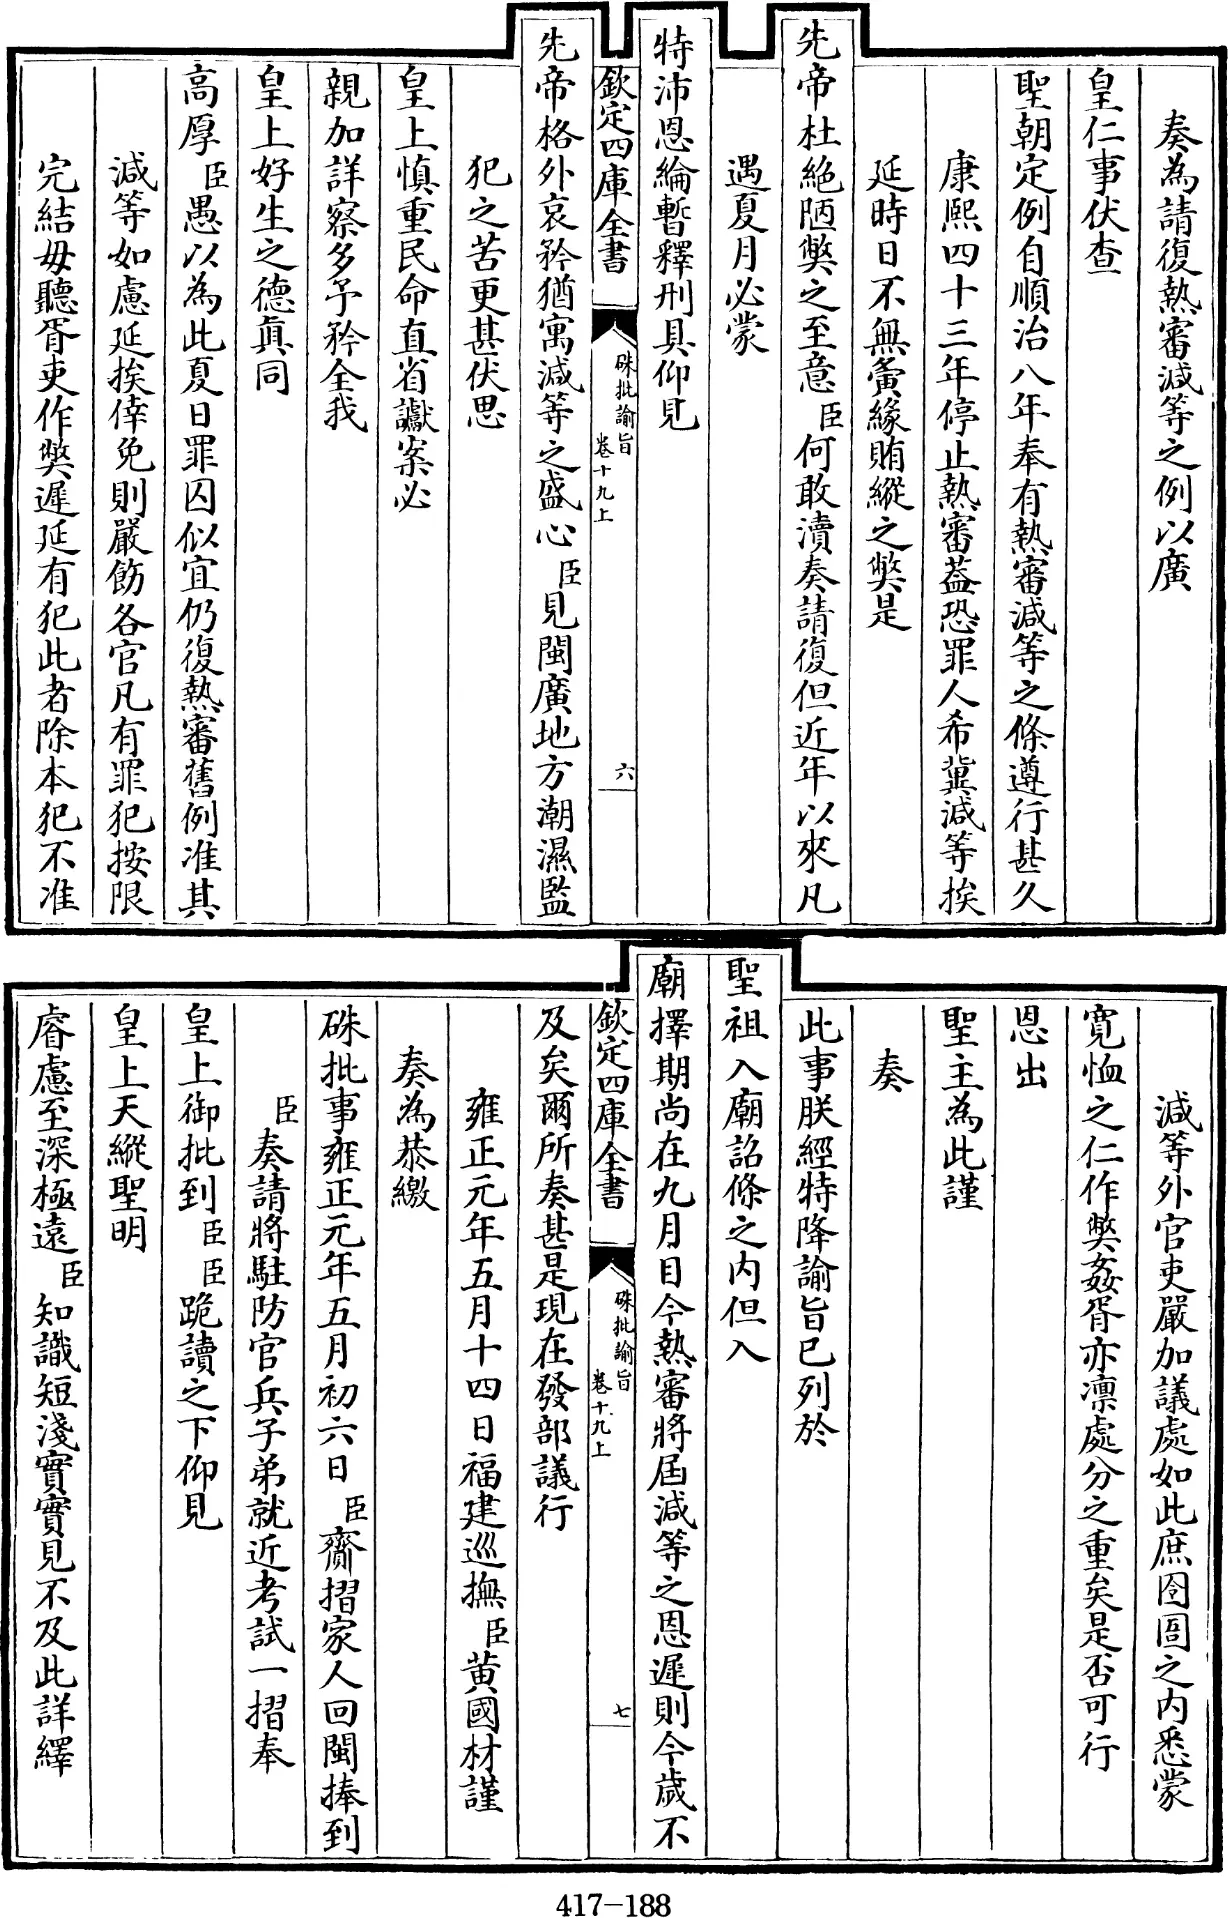 奏為請復熱審減等之例以廣
皇仁事伏查
聖朝定例自順治八年奉有熱審減等之條遵行甚久
康熙四十三年停止熱審葢恐罪人希冀減等挨
延時日不無夤緣賄縱之弊是
先帝杜絶陋弊之至意臣何敢瀆奏請復但近年以來凡
遇夏月必蒙
特沛恩綸暫釋刑具仰見
欽定四庫全書
硃批諭旨
卷十九上
六
先帝格外哀矜猶寓減等之盛心臣見閩廣地方潮濕監
犯之苦更甚伏思
皇上慎重民命直省讞案必
親加詳察多予矜全我
皇上好生之德真同
高厚臣愚以為此夏日罪囚似宜仍復熱審舊例准其
減等如慮延挨倖免則嚴飭各官凡有罪犯按限
完結毋聽胥吏作弊遲延有犯此者除本犯不准
減等外官吏嚴加議處如此庶囹圄之内悉蒙
寛恤之仁作弊姦胥亦凛處分之重矣是否可行
恩出
聖主為此謹
奏
此事朕經特降諭旨已列於
聖祖入廟詔條之内但入
廟擇期尚在九月目今熱審將屆減等之恩遲則今歲不
欽定四庫全書
硃批諭旨
卷十九上
七
及矣爾所奏甚是現在發部議行
雍正元年五月十四日福建巡撫臣黄國材謹
奏為恭繳
硃批事雍正元年五月初六日臣齎摺家人回閩捧到
臣奏請將駐防官兵子弟就近考試一摺奉
皇上御批到臣臣跪讀之下仰見
皇上天縱聖明
睿慮至深極遠臣知識短淺實實見不及此詳繹
417-188